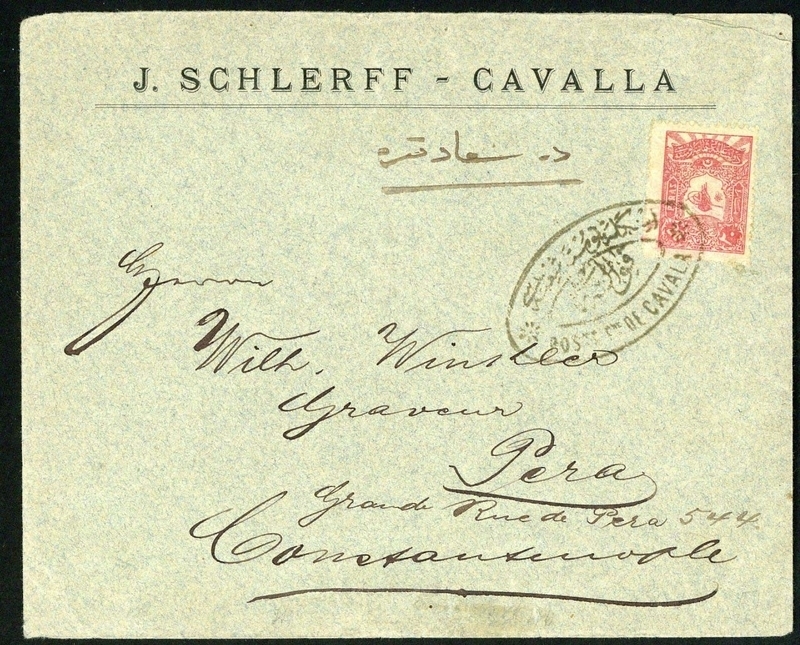 J. SCHLERFF - CAVALLA
در سعادت
Herrn
Wilh. Winkler
Graveur
Pera
Grande Rue de Pera 544
Constantinople
POSTE Cle DE CAVALA